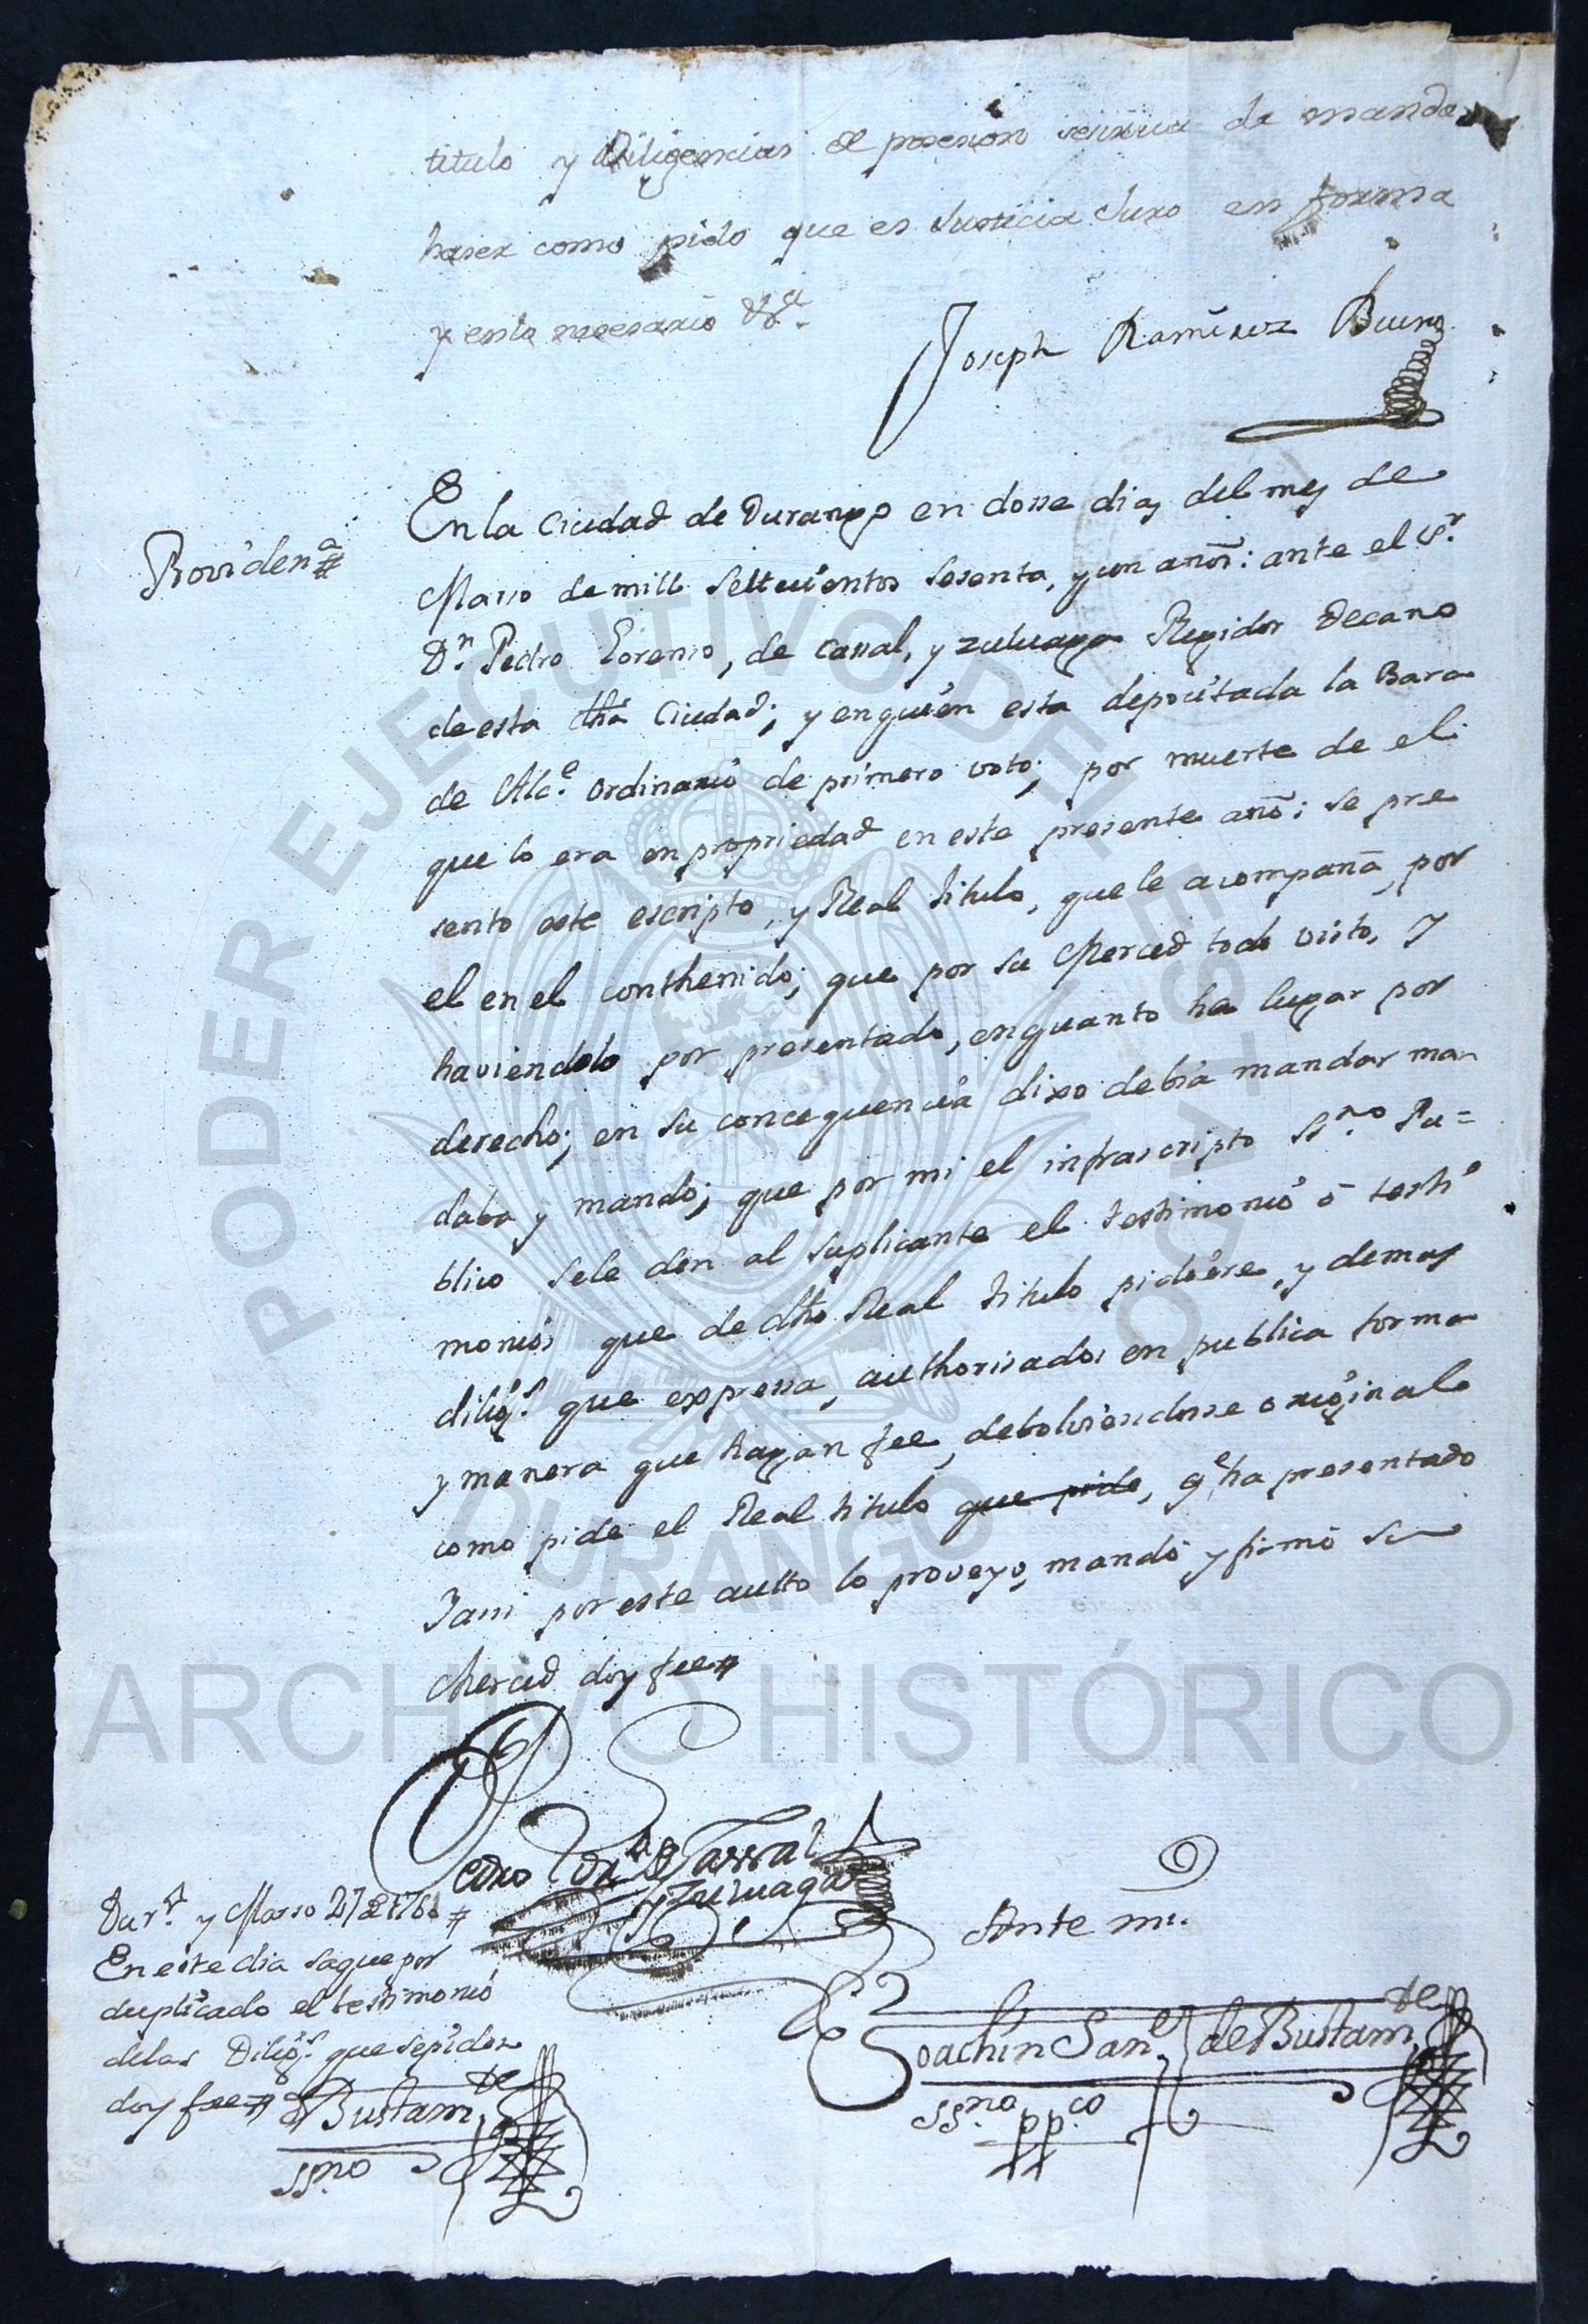 titulo y Diligencias de posesion se sirva de manda
haser como pido que es Justicia Juro en forma
y en lo nesesario &ca.
Joseph Ramirez Bueno
Providen.a #
En la Ciudad de Durango en dosse dias del mes de
Marso de mill settecientos sesenta, y un años: ante el S.r
D.n Pedro Lorenso, de Carral, y zuluaga Regidor Decano
de esta dha Ciudad; y en quien esta depocitada la Bara
de Alc.e ordinario de primero voto; por muerte de el
que lo era en propriedad en este presente año; se pre
sento este escripto, y Real titulo, que le acompaña, por
el en el conthenido; que por su Merced todo visto, y
haviendolo por presentado, en quanto ha lugar por
derecho; en su consequencia dixo debia mandar man
daba y mandó; que por mi el infrascripto SS.no Pu=
blico se le den al suplicante el testimonio ó testi
monios que de dho Real titulo pidiere, y demas
dilig.s que expresa, authorisados en publica forma
y manera que hagan fee, debolviendosse original
como pide el Real titulo que pide, q.e ha presentado
Y assi por este autto lo proveyo, mandó y firmó Su
Merced doy fee #
Pedro Lor.so de Carral
y Zuluaga
Ante mi.
Joachin San.z de Bustam.te
SS.no pp.co
Dur.o y Marso 27 de 1761 #
En este dia saque por
duplicado el testimonio
de las Dilig.s que se piden
doy fee #
Bustam.te
SS.no
PODER EJECUTIVO DEL ESTADO
DURANGO
ARCHIVO HISTÓRICO